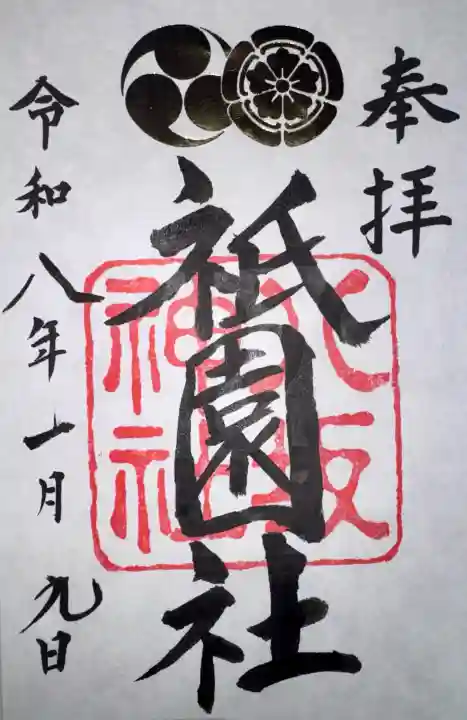 奉拝
祇園社
八坂神社
令和八年一月九日